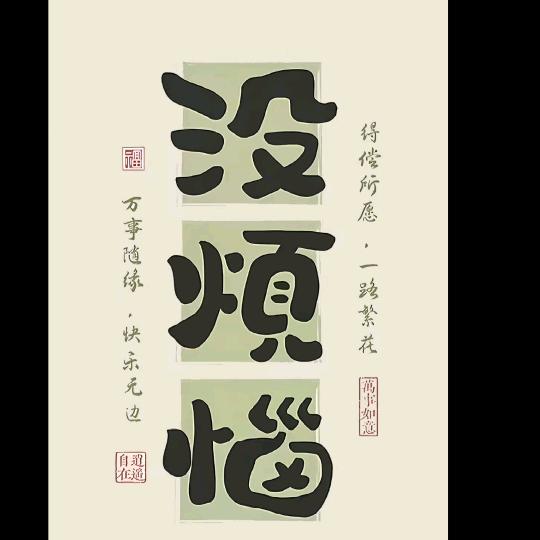 没
煩
惱
得偿所愿，一路繁花
萬事如意
福
万事随缘，快乐无边
逍遥
自在